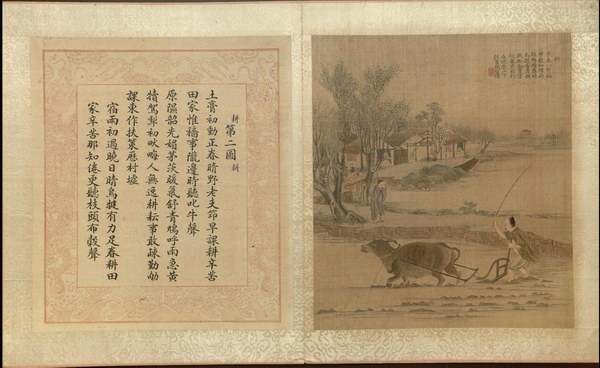 耕 第二圖 耕
土膏初動正春晴野老支筇早課耕辛苦
田家惟穡事隴邊時聽叱牛聲
原隰韶光媚茅茨暖氣舒青鳩呼雨急黃
犢駕犁初畎畝人無逸耕耘事敢疎勤劬
課東作扶策歷村墟
宿雨初過曉日晴烏犍有力足春耕田
家辛苦那知倦更聽枝頭布穀聲
耕